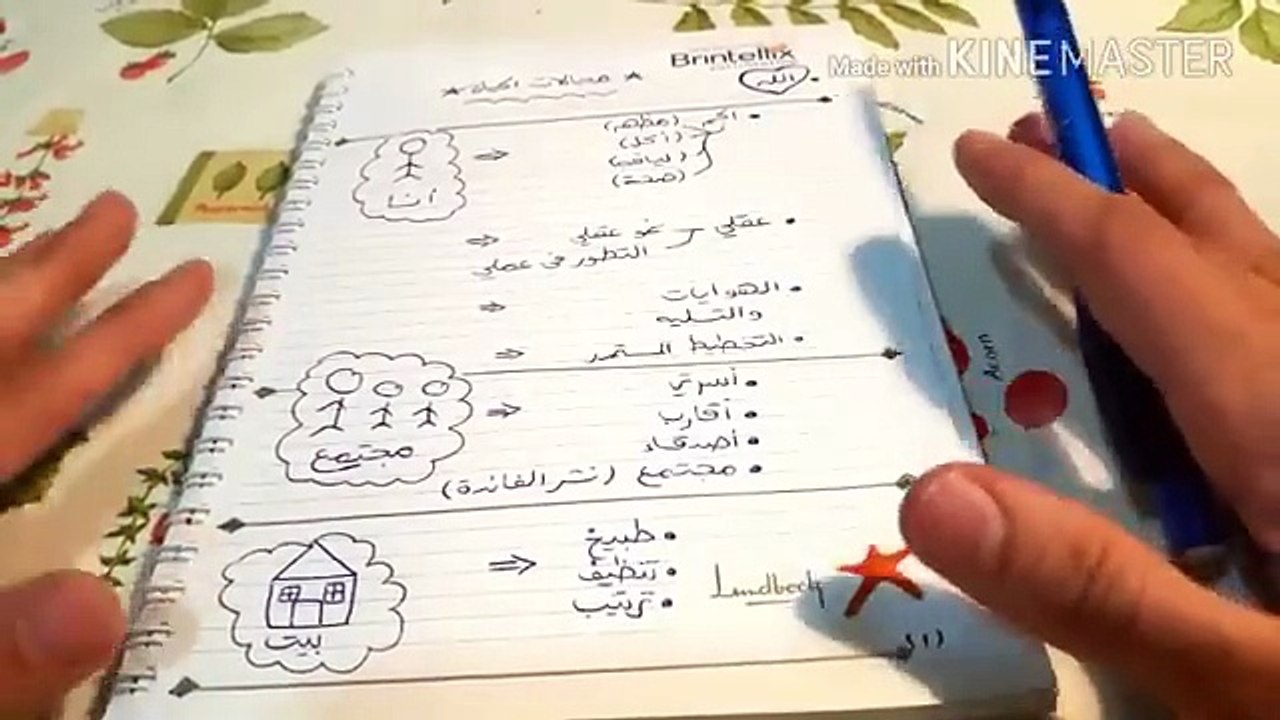 Brintellix
Made with KINEMASTER
★ مجالات الحياة ★
الله
• الجسم (مظهر)
(أكل)
(لياقة)
(صحة)
أنا
• عقلي - نمو عقلي
التطور في عملي
• الهوايات
والتسليه
• التخطيط المستمر
• أسرتي
• أقارب
• أصدقاء
• مجتمع (نشر الفائدة)
مجتمع
• طبيخ
• تنظيف
• ترتيب
بيت
Lundbeck
Acorn